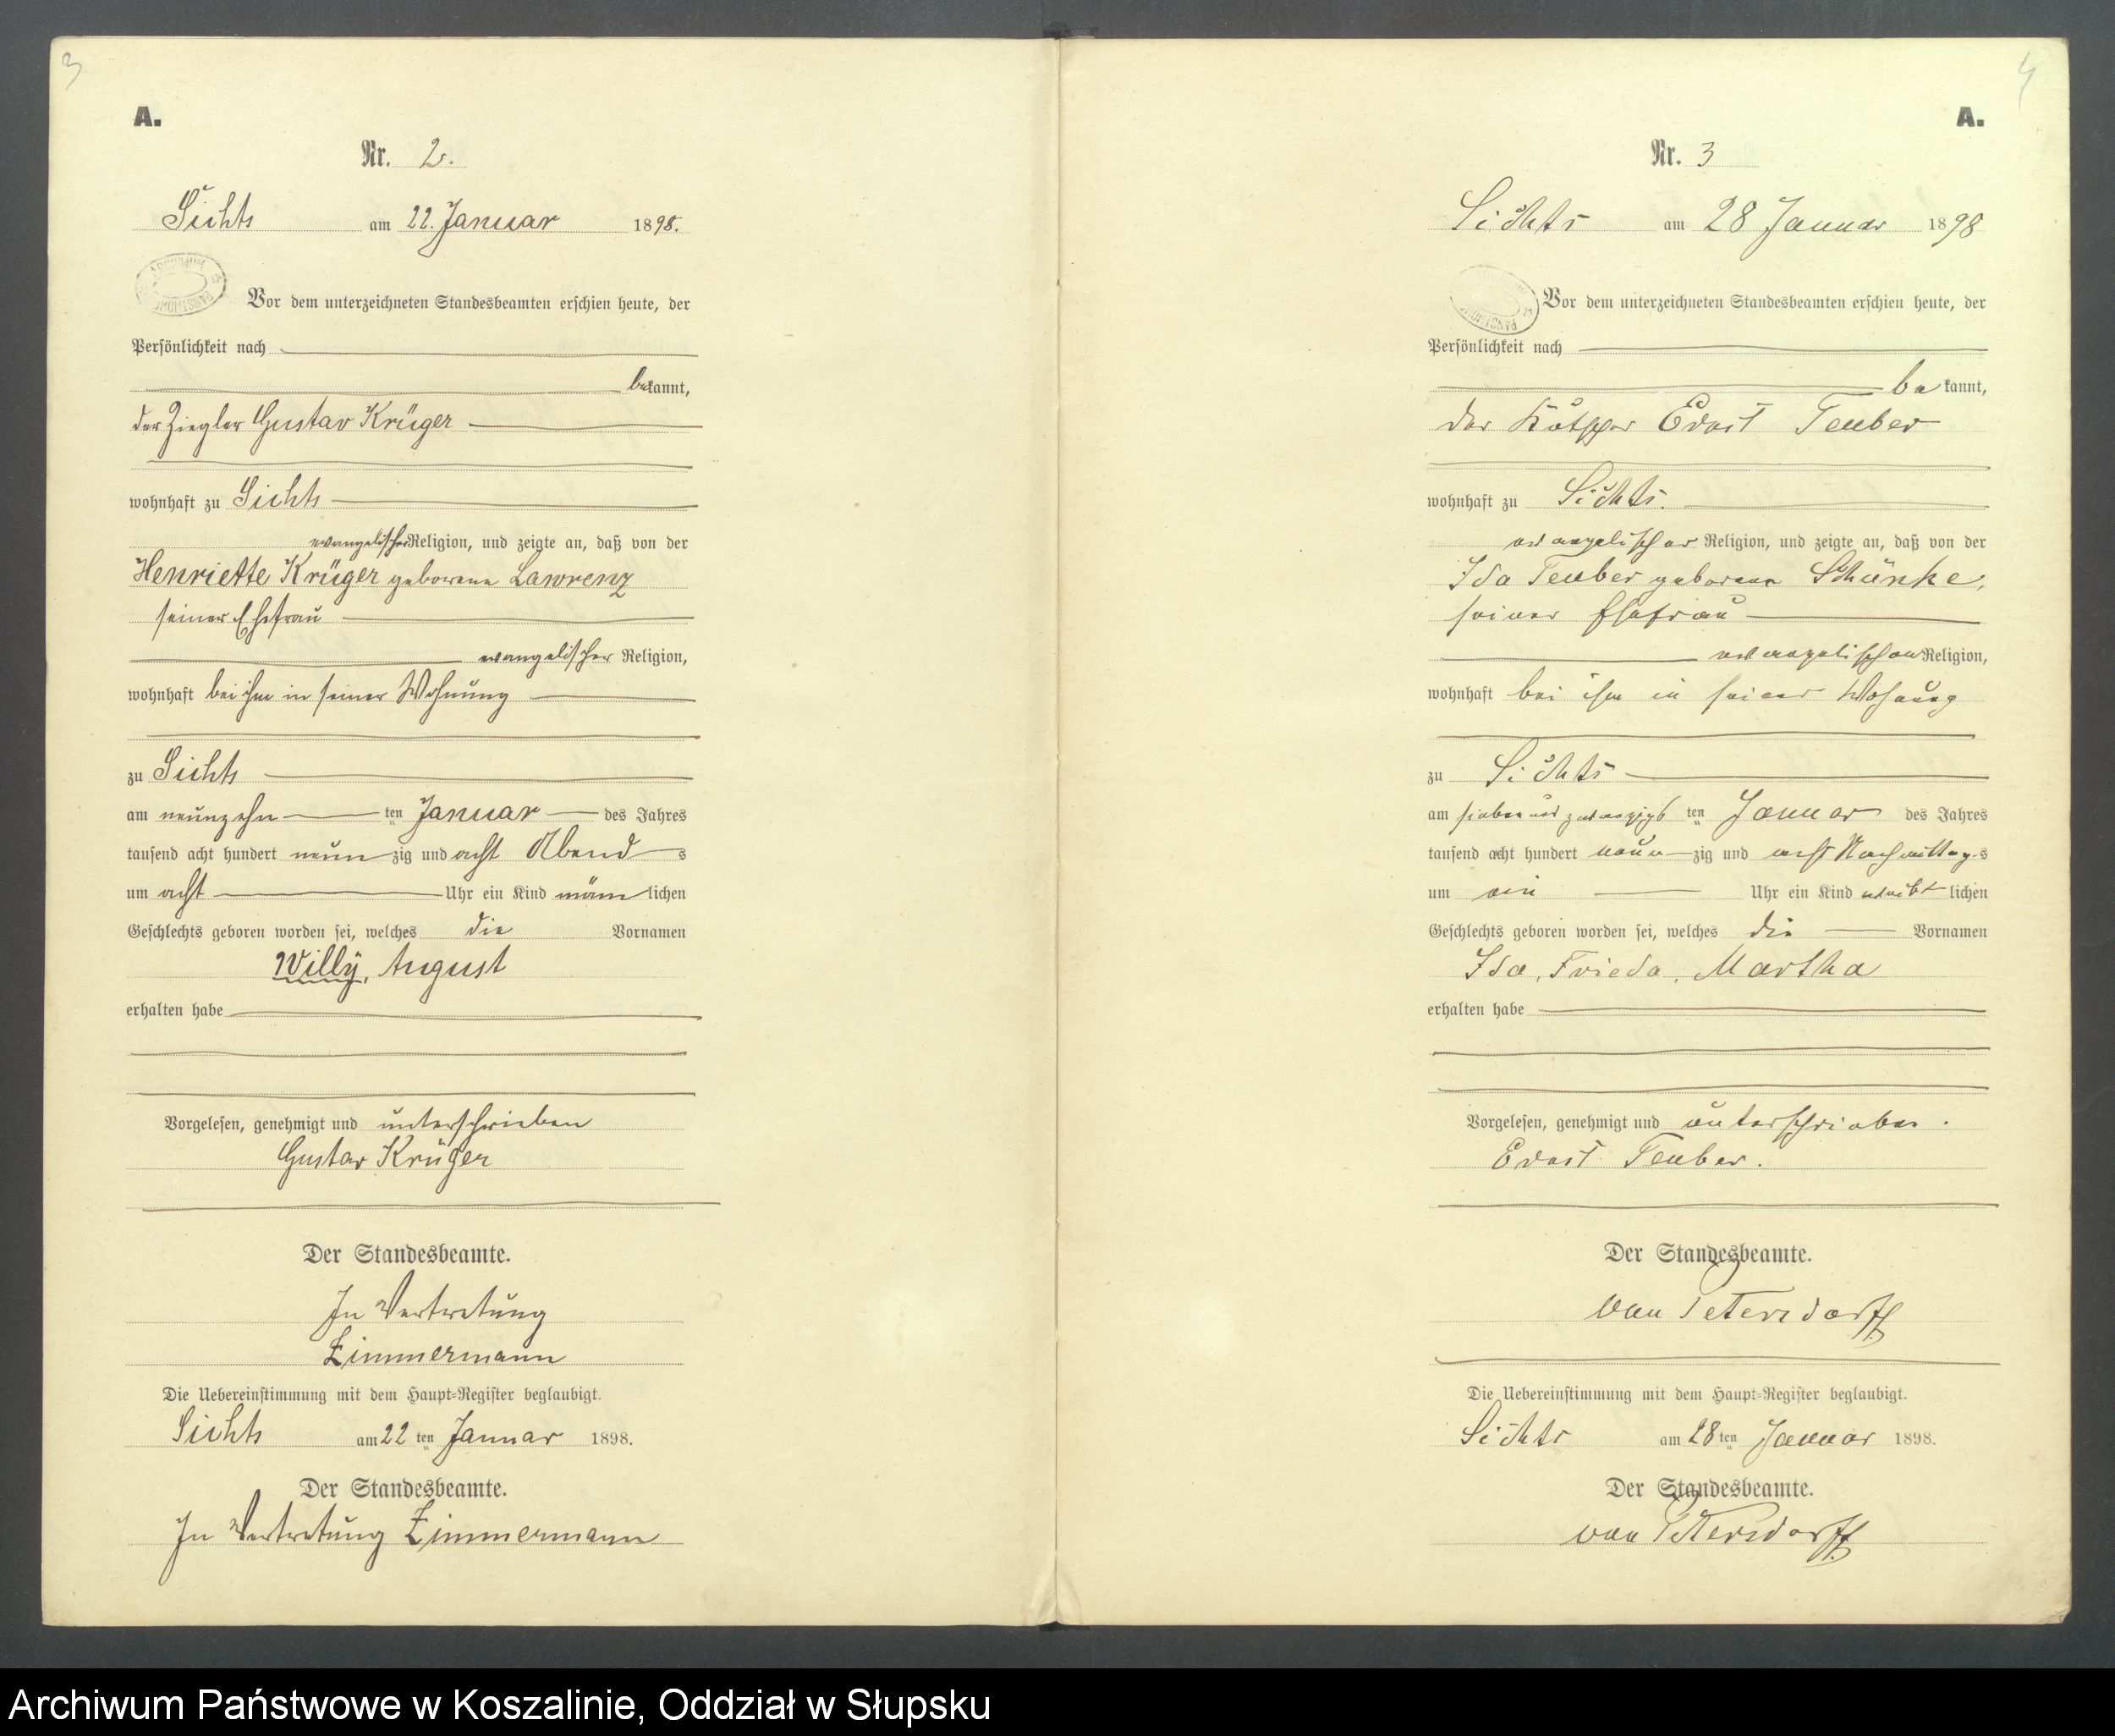 3
A.
Nr. 2.
Sichts am 22. Januar 1898.
Vor dem unterzeichneten Standesbeamten erschien heute, der
Persönlichkeit nach
bekannt,
der Ziegler Gustav Krüger
wohnhaft zu Sichts
evangelischer Religion, und zeigte an, daß von der
Henriette Krüger geborene Lawrenz
seiner Ehefrau
evangelischer Religion,
wohnhaft bei ihm in seiner Wohnung
zu Sichts
am neunzehn ten Januar des Jahres
tausend acht hundert neun zig und acht Abend s
um acht Uhr ein Kind männ lichen
Geschlechts geboren worden sei, welches die Vornamen
Willy, August
erhalten habe
Vorgelesen, genehmigt und unterschrieben
Gustav Krüger
Der Standesbeamte.
In Vertretung
Zimmermann
Die Uebereinstimmung mit dem Haupt-Register beglaubigt.
Sichts am 22 ten Januar 1898.
Der Standesbeamte.
In Vertretung Zimmermann
4
A.
Nr. 3
Sichts am 28 Januar 1898
Vor dem unterzeichneten Standesbeamten erschien heute, der
Persönlichkeit nach
be kannt,
der Teuber
wohnhaft zu Sichts.
evangelischer Religion, und zeigte an, daß von der
Ida Teuber geborene Schünke,
seiner Ehefrau
evangelischen Religion,
wohnhaft bei ihm in seiner Wohnung
zu Sichts
am siebenundzwanzigs ten Januar des Jahres
tausend acht hundert neun zig und acht Nachmittag s
um ein Uhr ein Kind weib lichen
Geschlechts geboren worden sei, welches die Vornamen
Ida, Frieda, Martha
erhalten habe
Vorgelesen, genehmigt und unterschrieben.
Teuber.
Der Standesbeamte.
von Petersdorff
Die Uebereinstimmung mit dem Haupt-Register beglaubigt.
Sichts am 28 ten Januar 1898.
Der Standesbeamte.
von Petersdorff
Archiwum Państwowe w Koszalinie, Oddział w Słupsku